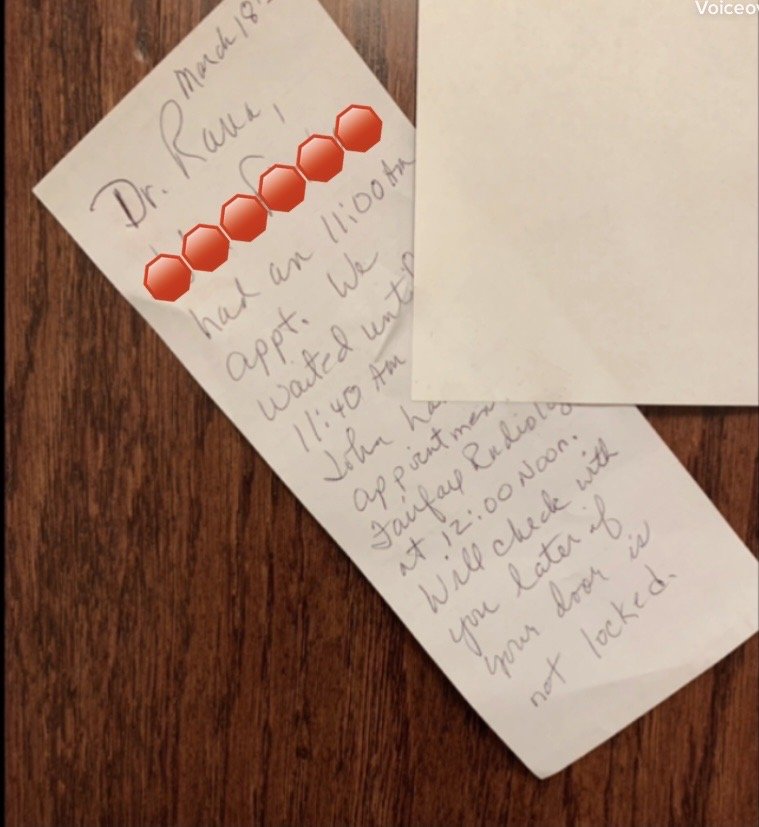 Voiceov
March 18
Dr. Rana,
had an 11:00 Am
appt. We
waited until
11:40 Am
John ha
appointmen
Fairfax Radiolog
at 12:00 Noon.
Will check with
you later if
your door is
not locked.